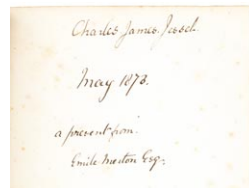 Charles James Jessel.
May 1873.
a present from
Emile Merton Esq.